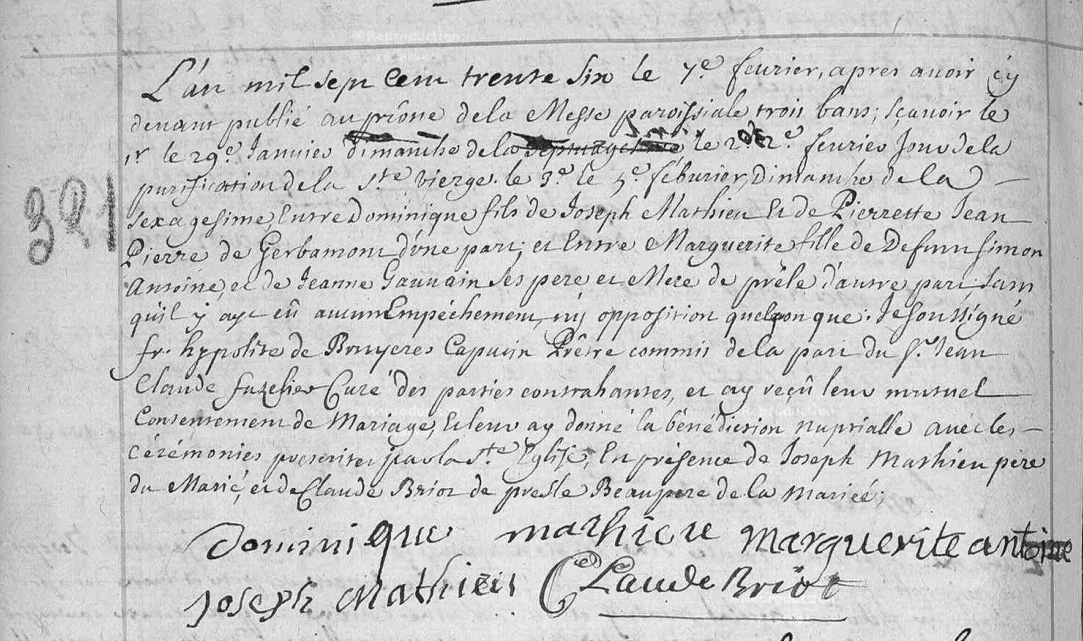 L'an mil sept cent trente six le 7e fevrier, apres avoir cy
devant publié au prône de la Messe paroissiale trois bans; sçavoir le
1r le 29e Janvier dimanche de la septuagesime le 2d le 2e fevrier Jour de la
purification de la Ste Vierge. le 3e le 5e février, dimanche de la
sexagesime, Entre dominique fils de Joseph Mathieu Et de Pierrette Jean
Pierre de Gerbamont d'une part; et Entre Marguerite fille de Defunt Simon
Antoine, et de Jeanne Gauvain ses pere et Mere de prêle d'autre part sans
qu'il y aye eû aucun Empéchement, ni opposition quelqonque. Je soussigné
fr. hypolite de Bruyeres Capucin Prêtre commis de la part du Sr Jean
Claude fuzelier Curé des parties contrahantes, et ay reçû leur mutuel
Consentement de Mariage, Et leur ay donné la bénédiction nuptialle avec les
cérémonies prescrites par la Ste Eglise, En présence de Joseph Mathieu pere
du Marié, et de Claude Briot de presle Beaupere de la Mariée;
321
Dominique mathieu Marguerite antoine
Joseph Mathieu Claude Briot